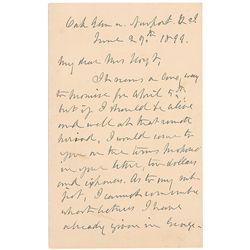 Oak Glen, Newport
June 29th 1899.
My dear Mrs Hoyt,
It seems a long way
to promise for April
but if I should be alive
and well at that remote
period, I would come to
you on the terms
in your letter, ten dollars
and expenses. As to my sub-
ject, I cannot remember
what lectures I have
already given in George-